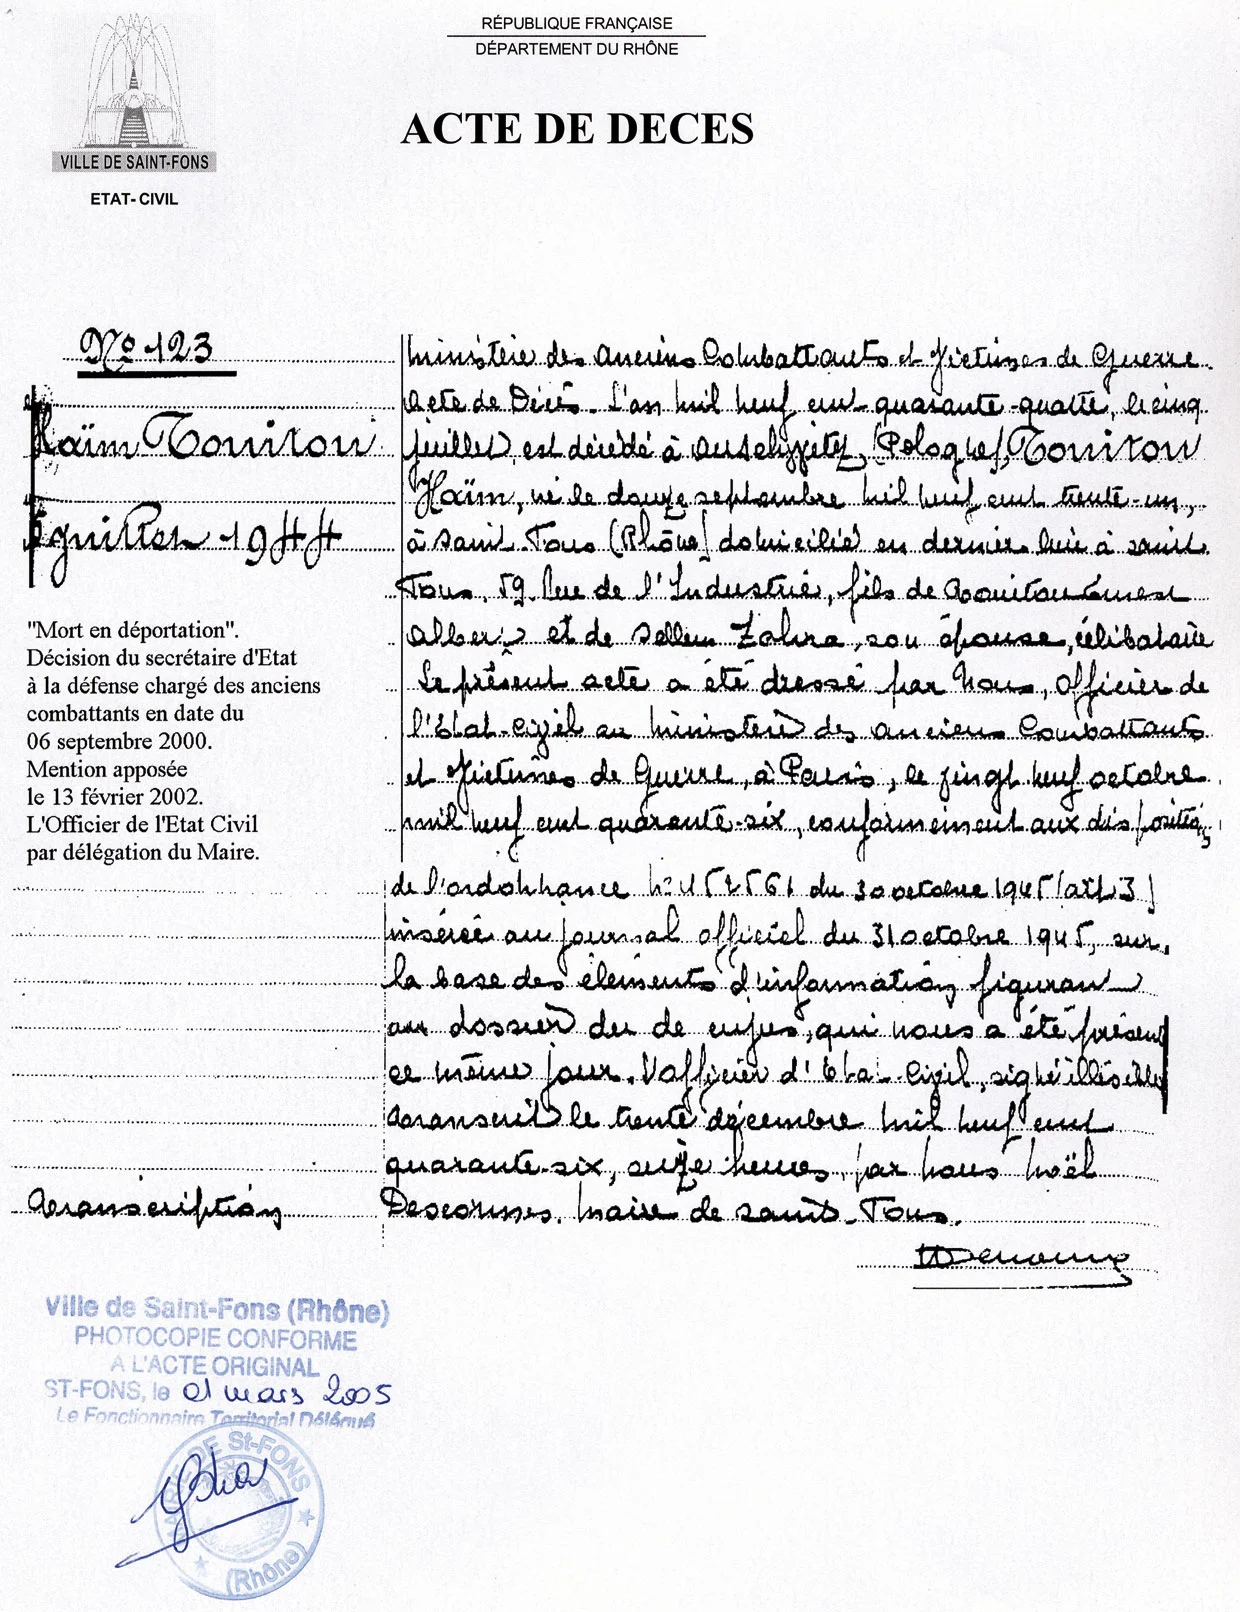 RÉPUBLIQUE FRANÇAISE
DÉPARTEMENT DU RHÔNE
VILLE DE SAINT-FONS
ETAT-CIVIL
ACTE DE DECES
No 123
Haïm Touitou
5 juillet 1944
"Mort en déportation".
Décision du secrétaire d'Etat
à la défense chargé des anciens
combattants en date du
06 septembre 2000.
Mention apposée
le 13 février 2002.
L'Officier de l'Etat Civil
par délégation du Maire.
Transcription
Ministère des Anciens Combattants et Victimes de Guerre
Acte de Décès. L'an mil neuf cent quarante-quatre, le cinq
juillet, est décédé à Auschwitz (Pologne), Touitou
Haïm, né le douze septembre mil neuf cent trente-un,
à Saint-Fons (Rhône) domicilié en dernier lieu à Saint
Fons, 59 Rue de l'Industrie, fils de Touitou Ernest
Albert et de Sellem Zohra, son épouse, célibataire
Le présent acte a été dressé par Nous, Officier de
l'Etat-Civil au Ministère des Anciens Combattants
et Victimes de Guerre, à Paris, le vingt neuf octobre
mil neuf cent quarante-six, conformément aux dispositions
de l'ordonnance n° 452561 du 30 octobre 1945 (art 3)
inséréé au journal officiel du 31 octobre 1945, sur
la base des éléments d'information figuran
au dossier du de cujus, qui nous a été présen
ce même jour. L'officier d'Etat-Civil, signé illisible
Transcrit le trente décembre mil neuf cent
quarante-six, seize heures, par nous Noël
Descormes, Maire de Saint-Fons.
Ville de Saint-Fons (Rhône)
PHOTOCOPIE CONFORME
A L'ACTE ORIGINAL
ST-FONS, le 01 mars 2005
Le Fonctionnaire Territorial Délégué
MAIRIE DE St-FONS
(Rhône)